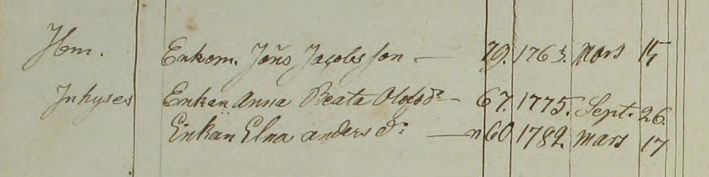 Hm. Enkom. Jöns Jacobsson — 79. 1763. Mars 15
Inhyses Enkan Anna Beata Olofsdr — 67. 1775. Sept. 26.
Enkan Elna Andersdr — n 60 1782 Mars 17